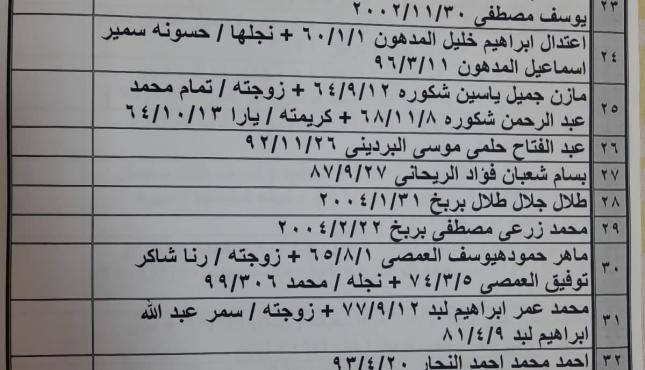 ٢٣
يوسف مصطفى ٢٠٠٢/١١/٣٠
٢٤
اعتدال ابراهيم خليل المدهون ٦٠/١/١ + نجلها / حسونه سمير
اسماعيل المدهون ٩٦/٣/١١
٢٥
مازن جميل ياسين شكوره ٦٤/٩/١٢ + زوجته / تمام محمد
عبد الرحمن شكوره ٦٨/١١/٨ + كريمته / يارا ٦٤/١٠/١٣
٢٦
عبد الفتاح حلمى موسى البردينى ٩٢/١١/٢٦
٢٧
بسام شعبان فؤاد الريحانى ٨٧/٩/٢٧
٢٨
طلال جلال طلال بربخ ٢٠٠٤/١/٣١
٢٩
محمد زرعى مصطفى بربخ ٢٠٠٤/٢/٢٢
٣٠
ماهر حمودهيوسف العمصى ٦٥/٨/١ + زوجته / رنا شاكر
توفيق العمصى ٧٤/٣/٥ + نجله / محمد ٩٩/٣٠٦
٣١
محمد عمر ابراهيم لبد ٧٧/٩/١٢ + زوجته / سمر عبد الله
ابراهيم لبد ٨١/٤/٩
٣٢
احمد محمد احمد النجار ٩٣/٤/٢٠